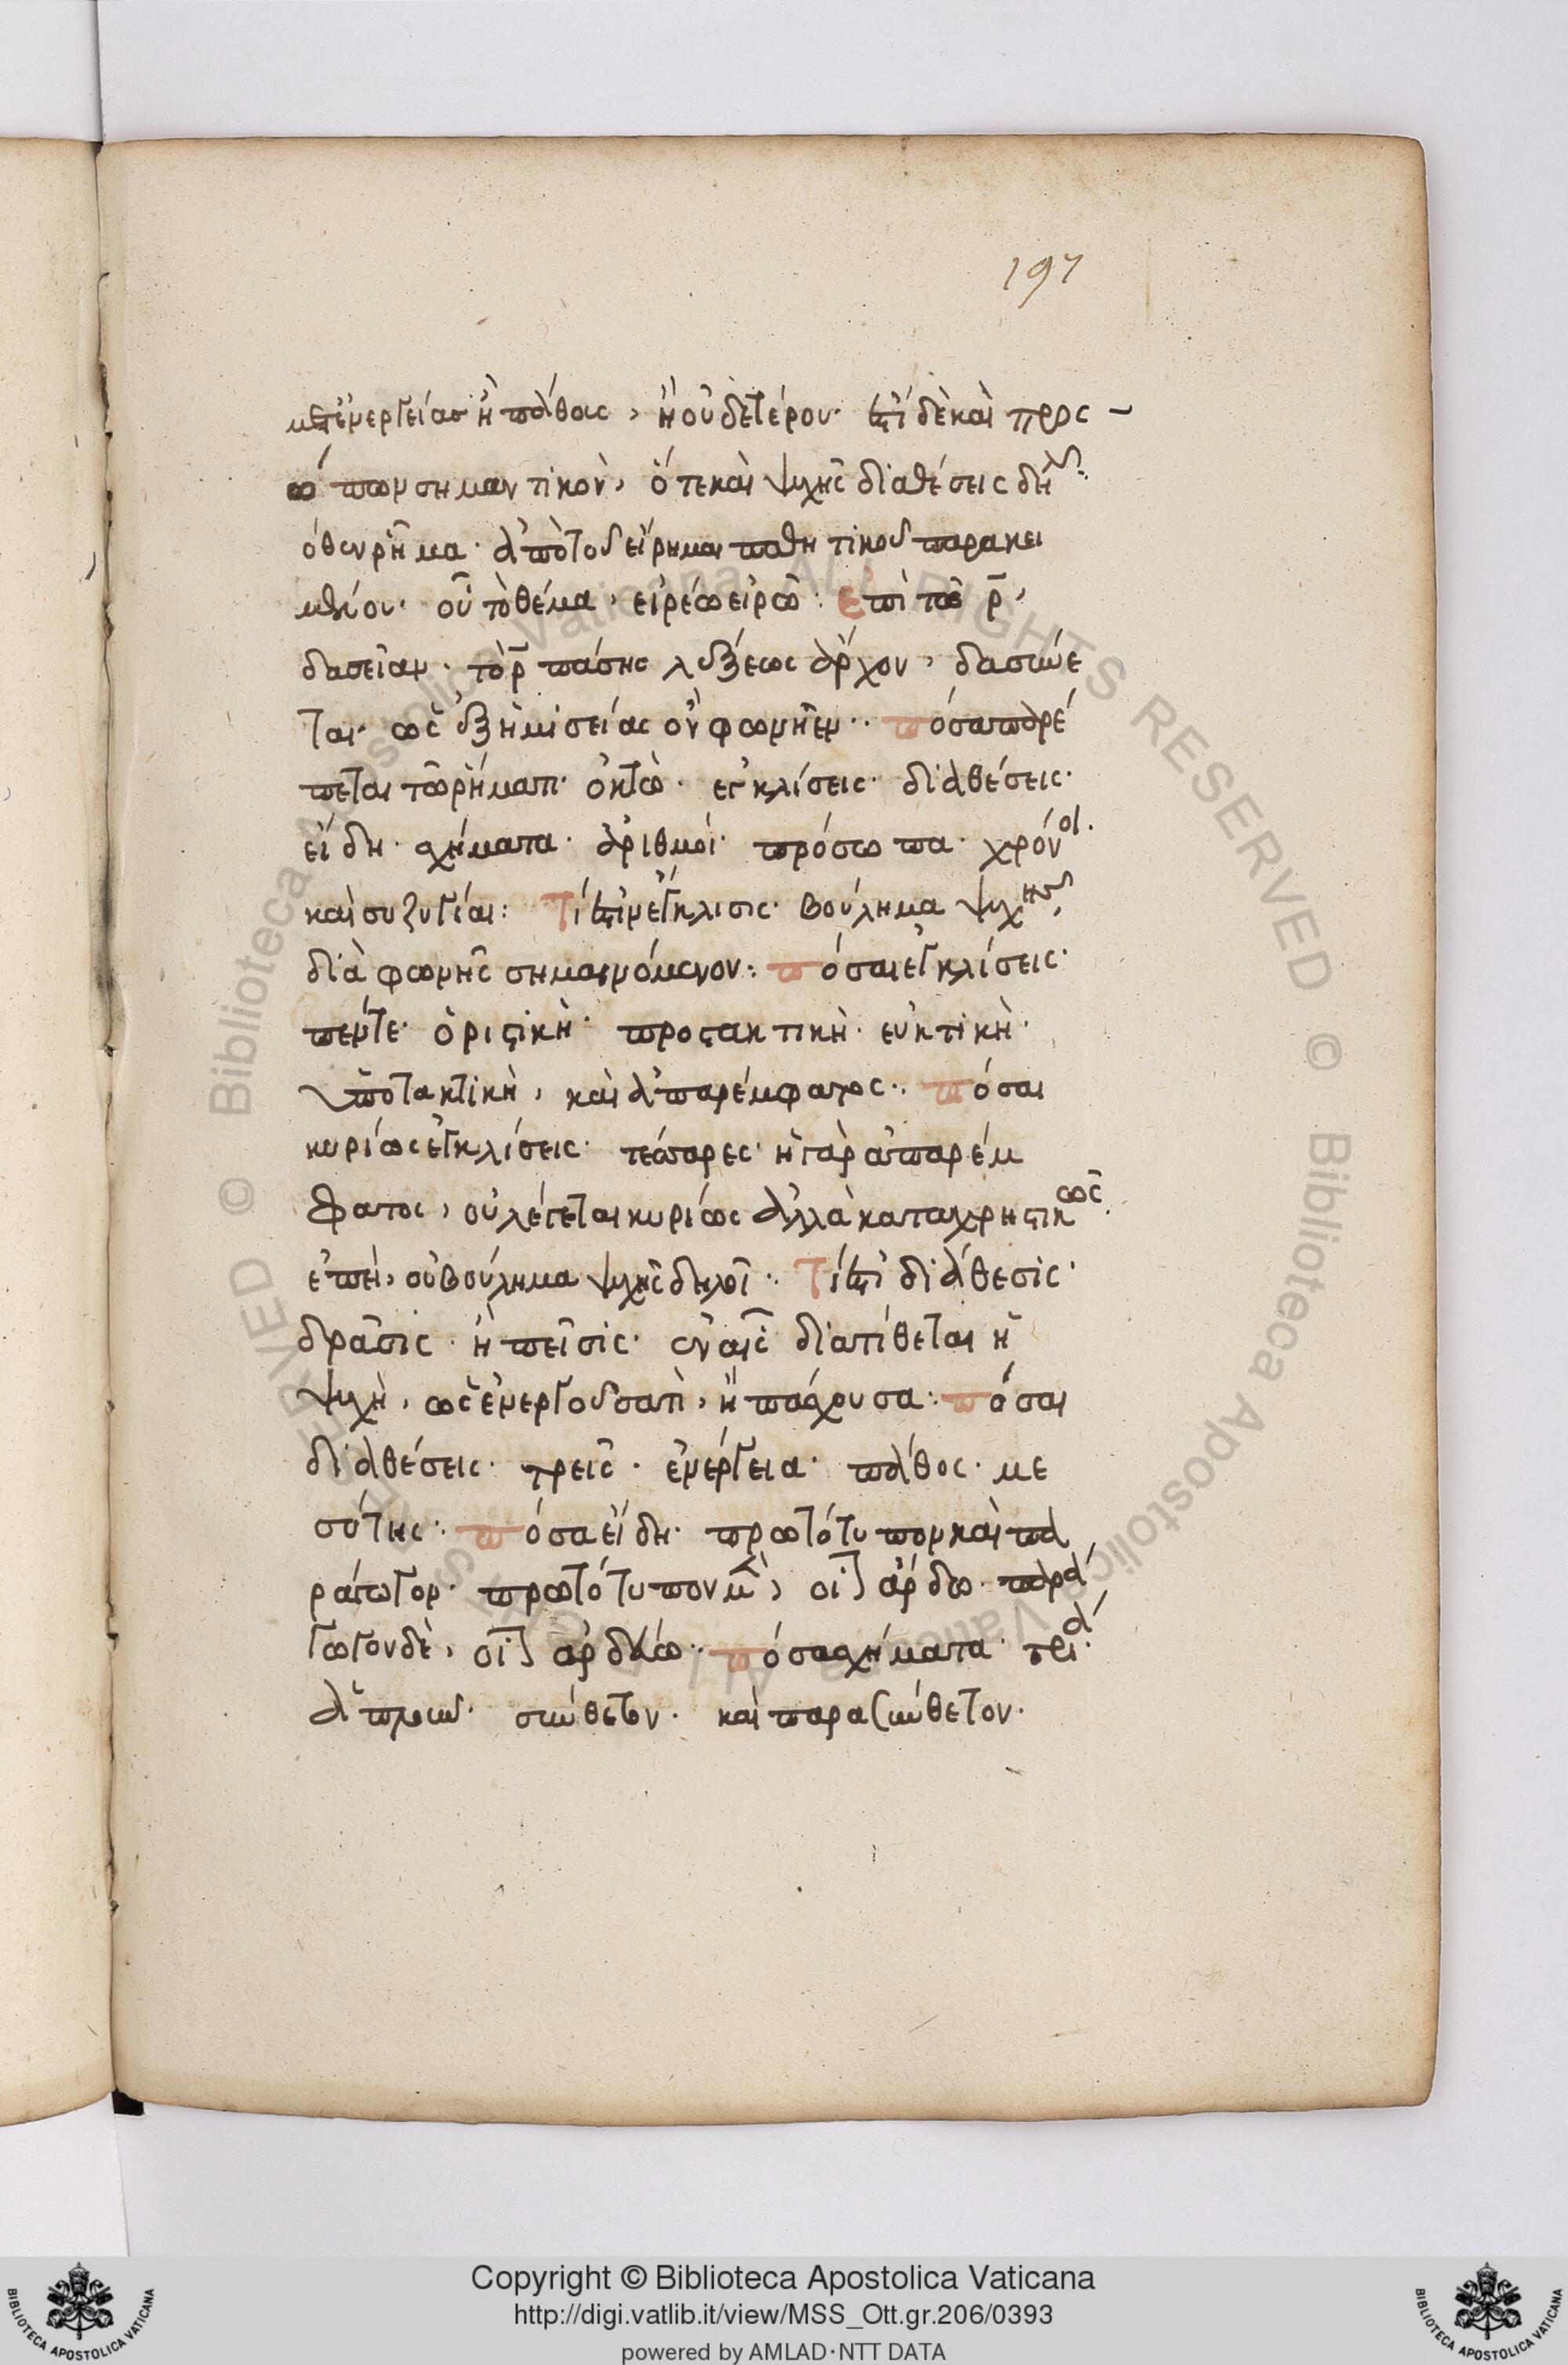 197
μετ' ἐνεργείας ἢ πάθους, ἢ οὐδετέρου· ἔστι δὲ καὶ προσ
ώπων σημαντικὸν, ὅτε καὶ ψυχῆς διαθέσεις δηλοῖ·
ὅθεν ῥῆμα· ἀπὸ τοῦ εἴρημαι παθητικοῦ παρακει
μένου· οὗ τὸ θέμα, εἰρέω εἰρῶ: Ἐπὶ τοῦ ρ̄,
δασεῖαν· τὸ ρ̄ πάσης λέξεως ἄρχον, δασύνε
ται· ὡς ἐξ ἡμισείας ὂν φωνῆεν: Πόσα παρέ
πεται τῶ ῥήματι· ὀκτώ· ἐγκλίσεις· διαθέσεις·
εἴδη· σχήματα· ἀριθμοί· πρόσωπα· χρόνοι·
καὶ συζυγίαι: Τί ἐστιν ἔγκλισις· βούλημα ψυχῆς,
διὰ φωνῆς σημαινόμενον: Πόσαι ἐγκλίσεις·
πέντε· ὁριστικὴ· προστακτικὴ· εὐκτικὴ·
ὑποτακτικὴ, καὶ ἀπαρέμφατος: Πόσαι
κυρίως ἐγκλίσεις· τέσσαρες· ἡ γὰρ ἀπαρέμ
φατος, οὐ λέγεται κυρίως ἀλλὰ καταχρηστικῶς·
ἐπεὶ, οὐ βούλημα ψυχῆς δηλοῖ: Τί ἐστι διάθεσις·
δρᾶσις· ἢ πεῖσις· ἐν αἷς διατίθεται ἡ
ψυχὴ, ὡς ἐνεργοῦσά τι, ἢ πάσχουσα: Πόσαι
διαθέσεις· τρεῖς· ἐνέργεια· πάθος· με
σότης: Πόσα εἴδη· πρωτότυπον καὶ πα
ράγωγον· πρωτότυπον μὲν, οἷον ἄρδω· παρά
γωγον δὲ, οἷον ἀρδεύω: Πόσα σχήματα· τρία·
ἁπλοῦν· σύνθετον· καὶ παρασύνθετον·
Copyright © Biblioteca Apostolica Vaticana
http://digi.vatlib.it/view/MSS_Ott.gr.206/0393
powered by AMLAD·NTT DATA